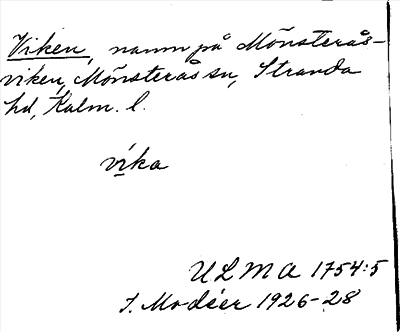 Viken, namn på Mönsterås-
viken, Mönsterås sn, Stranda
hd, Kalm. l.
vika
ULMA 1754:5
I. Modéer 1926-28